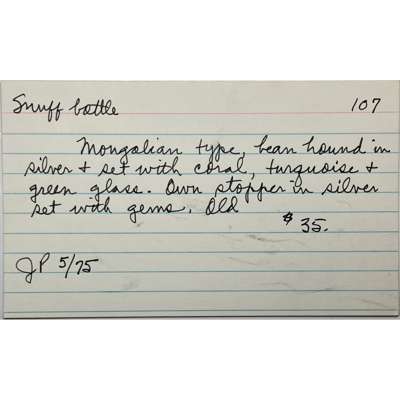 Snuff bottle 107
Mongolian type, bean bound in
silver + set with coral, turquoise +
green glass. Own stopper in silver
set with gems. Old
$35.
JP 5/75